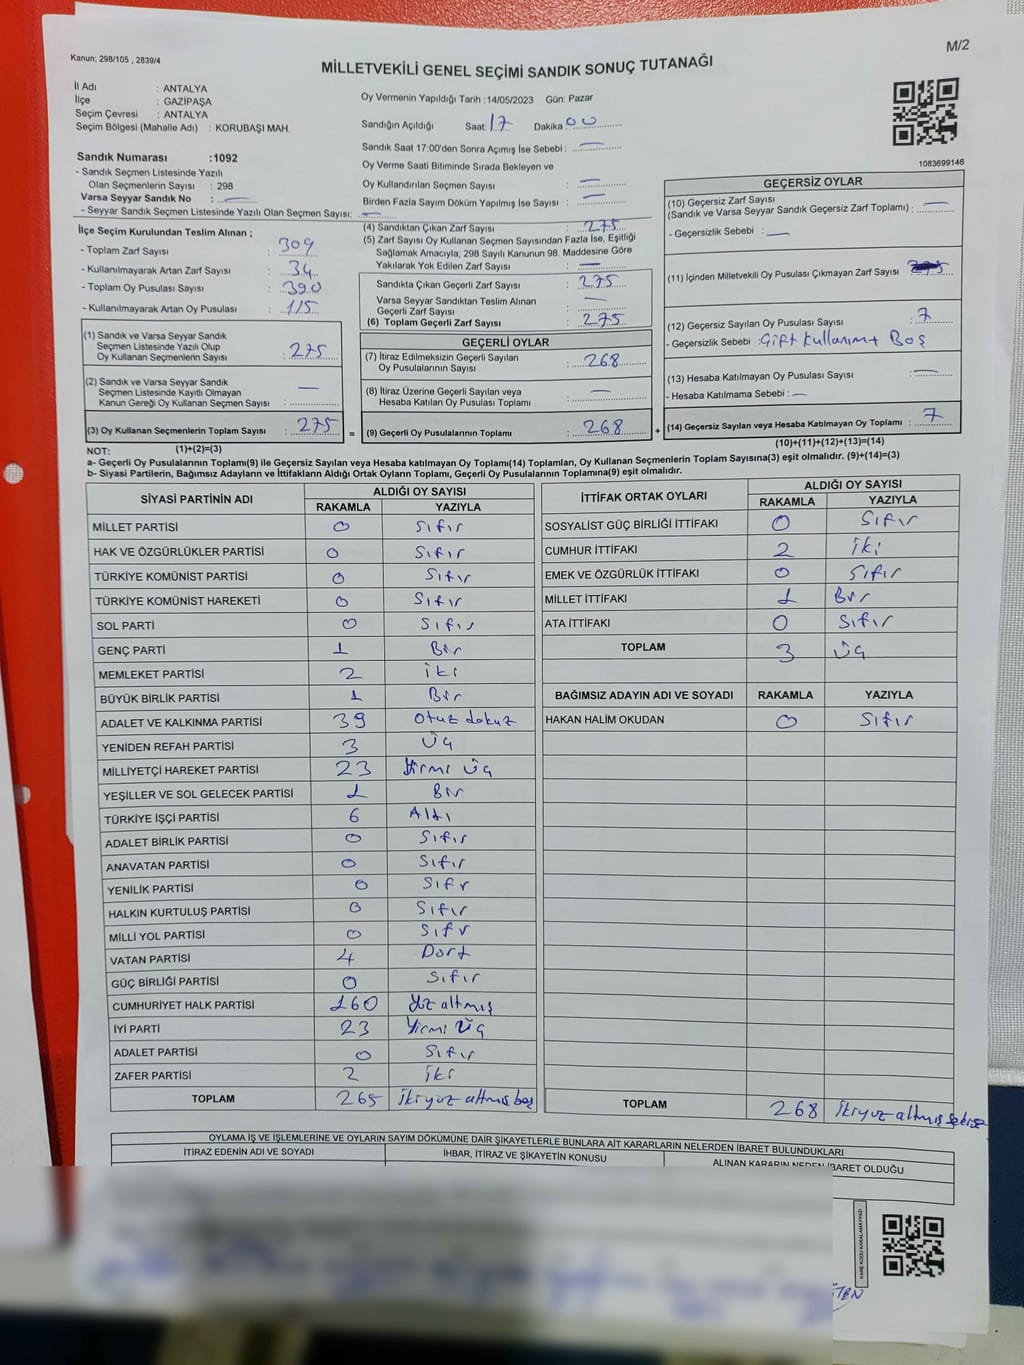 M/2
Kanun; 298/105 , 2839/4
MİLLETVEKİLİ GENEL SEÇİMİ SANDIK SONUÇ TUTANAĞI
İl Adı : ANTALYA
İlçe : GAZİPAŞA
Seçim Çevresi : ANTALYA
Seçim Bölgesi (Mahalle Adı) : KORUBAŞI MAH.
Sandık Numarası :1092
- Sandık Seçmen Listesinde Yazılı
Olan Seçmenlerin Sayısı : 298
Varsa Seyyar Sandık No : —
- Seyyar Sandık Seçmen Listesinde Yazılı Olan Seçmen Sayısı: —
İlçe Seçim Kurulundan Teslim Alınan ;
- Toplam Zarf Sayısı : 309
- Kullanılmayarak Artan Zarf Sayısı : 34
- Toplam Oy Pusulası Sayısı : 390
- Kullanılmayarak Artan Oy Pusulası : 115
(1) Sandık ve Varsa Seyyar Sandık
Seçmen Listesinde Yazılı Olup
Oy Kullanan Seçmenlerin Sayısı : 275
(2) Sandık ve Varsa Seyyar Sandık
Seçmen Listesinde Kayıtlı Olmayan
Kanun Gereği Oy Kullanan Seçmen Sayısı : —
(3) Oy Kullanan Seçmenlerin Toplam Sayısı : 275
Oy Vermenin Yapıldığı Tarih :14/05/2023 Gün: Pazar
Sandığın Açıldığı Saat: 17 Dakika: 00
Sandık Saat 17:00'den Sonra Açımış İse Sebebi : —
Oy Verme Saati Bitiminde Sırada Bekleyen ve
Oy Kullandırılan Seçmen Sayısı : —
Birden Fazla Sayım Döküm Yapılmış İse Sayısı : —
(4) Sandıktan Çıkan Zarf Sayısı : 275
(5) Zarf Sayısı Oy Kullanan Seçmen Sayısından Fazla İse, Eşitliği
Sağlamak Amacıyla; 298 Sayılı Kanunun 98. Maddesine Göre
Yakılarak Yok Edilen Zarf Sayısı : —
Sandıkta Çıkan Geçerli Zarf Sayısı : 275
Varsa Seyyar Sandıktan Teslim Alınan
Geçerli Zarf Sayısı : —
(6) Toplam Geçerli Zarf Sayısı : 275
GEÇERLİ OYLAR
(7) İtiraz Edilmeksizin Geçerli Sayılan
Oy Pusulalarının Sayısı : 268
(8) İtiraz Üzerine Geçerli Sayılan veya
Hesaba Katılan Oy Pusulası Toplamı : —
= (9) Geçerli Oy Pusulalarının Toplamı : 268
1083699146
GEÇERSİZ OYLAR
(10) Geçersiz Zarf Sayısı
(Sandık ve Varsa Seyyar Sandık Geçersiz Zarf Toplamı) : —
- Geçersizlik Sebebi : —
(11) İçinden Milletvekili Oy Pusulası Çıkmayan Zarf Sayısı
(12) Geçersiz Sayılan Oy Pusulası Sayısı : 7
- Geçersizlik Sebebi : Çift kullanım + Boş
(13) Hesaba Katılmayan Oy Pusulası Sayısı : —
- Hesaba Katılmama Sebebi : —
+ (14) Geçersiz Sayılan veya Hesaba Katılmayan Oy Toplamı : 7
NOT: (1)+(2)=(3)
(10)+(11)+(12)+(13)=(14)
a- Geçerli Oy Pusulalarının Toplamı(9) ile Geçersiz Sayılan veya Hesaba katılmayan Oy Toplamı(14) Toplamları, Oy Kullanan Seçmenlerin Toplam Sayısına(3) eşit olmalıdır. (9)+(14)=(3)
b- Siyasi Partilerin, Bağımsız Adayların ve İttifakların Aldığı Ortak Oyların Toplamı, Geçerli Oy Pusulalarının Toplamına(9) eşit olmalıdır.
SİYASİ PARTİNİN ADI ALDIĞI OY SAYISI
RAKAMLA YAZIYLA
MİLLET PARTİSİ 0 Sıfır
HAK VE ÖZGÜRLÜKLER PARTİSİ 0 Sıfır
TÜRKİYE KOMÜNİST PARTİSİ 0 Sıfır
TÜRKİYE KOMÜNİST HAREKETİ 0 Sıfır
SOL PARTİ 0 Sıfır
GENÇ PARTİ 1 Bir
MEMLEKET PARTİSİ 2 iki
BÜYÜK BİRLİK PARTİSİ 1 Bir
ADALET VE KALKINMA PARTİSİ 39 Otuz dokuz
YENİDEN REFAH PARTİSİ 3 Üç
MİLLİYETÇİ HAREKET PARTİSİ 23 Yirmi üç
YEŞİLLER VE SOL GELECEK PARTİSİ 1 Bir
TÜRKİYE İŞÇİ PARTİSİ 6 Altı
ADALET BİRLİK PARTİSİ 0 Sıfır
ANAVATAN PARTİSİ 0 Sıfır
YENİLİK PARTİSİ 0 Sıfr
HALKIN KURTULUŞ PARTİSİ 0 Sıfır
MİLLİ YOL PARTİSİ 0 Sıfr
VATAN PARTİSİ 4 Dört
GÜÇ BİRLİĞİ PARTİSİ 0 Sıfır
CUMHURİYET HALK PARTİSİ 160 Yüz altmış
İYİ PARTİ 23 Yirmi Üç
ADALET PARTİSİ 0 Sıfır
ZAFER PARTİSİ 2 iki
TOPLAM 265 ikiyüz altmış beş
İTTİFAK ORTAK OYLARI ALDIĞI OY SAYISI
RAKAMLA YAZIYLA
SOSYALİST GÜÇ BİRLİĞİ İTTİFAKI 0 Sıfır
CUMHUR İTTİFAKI 2 iki
EMEK VE ÖZGÜRLÜK İTTİFAKI 0 Sıfır
MİLLET İTTİFAKI 1 Bir
ATA İTTİFAKI 0 Sıfır
TOPLAM 3 üç
BAĞIMSIZ ADAYIN ADI VE SOYADI RAKAMLA YAZIYLA
HAKAN HALİM OKUDAN 0 Sıfır
TOPLAM 268 ikiyüz altmış sekiz
OYLAMA İŞ VE İŞLEMLERİNE VE OYLARIN SAYIM DÖKÜMÜNE DAİR ŞİKAYETLERLE BUNLARA AİT KARARLARIN NELERDEN İBARET BULUNDUKLARI
İTİRAZ EDENİN ADI VE SOYADI İHBAR, İTİRAZ VE ŞİKAYETİN KONUSU ALINAN KARARIN NEDEN İBARET OLDUĞU
KARE KODU KARALAMAYINIZ!